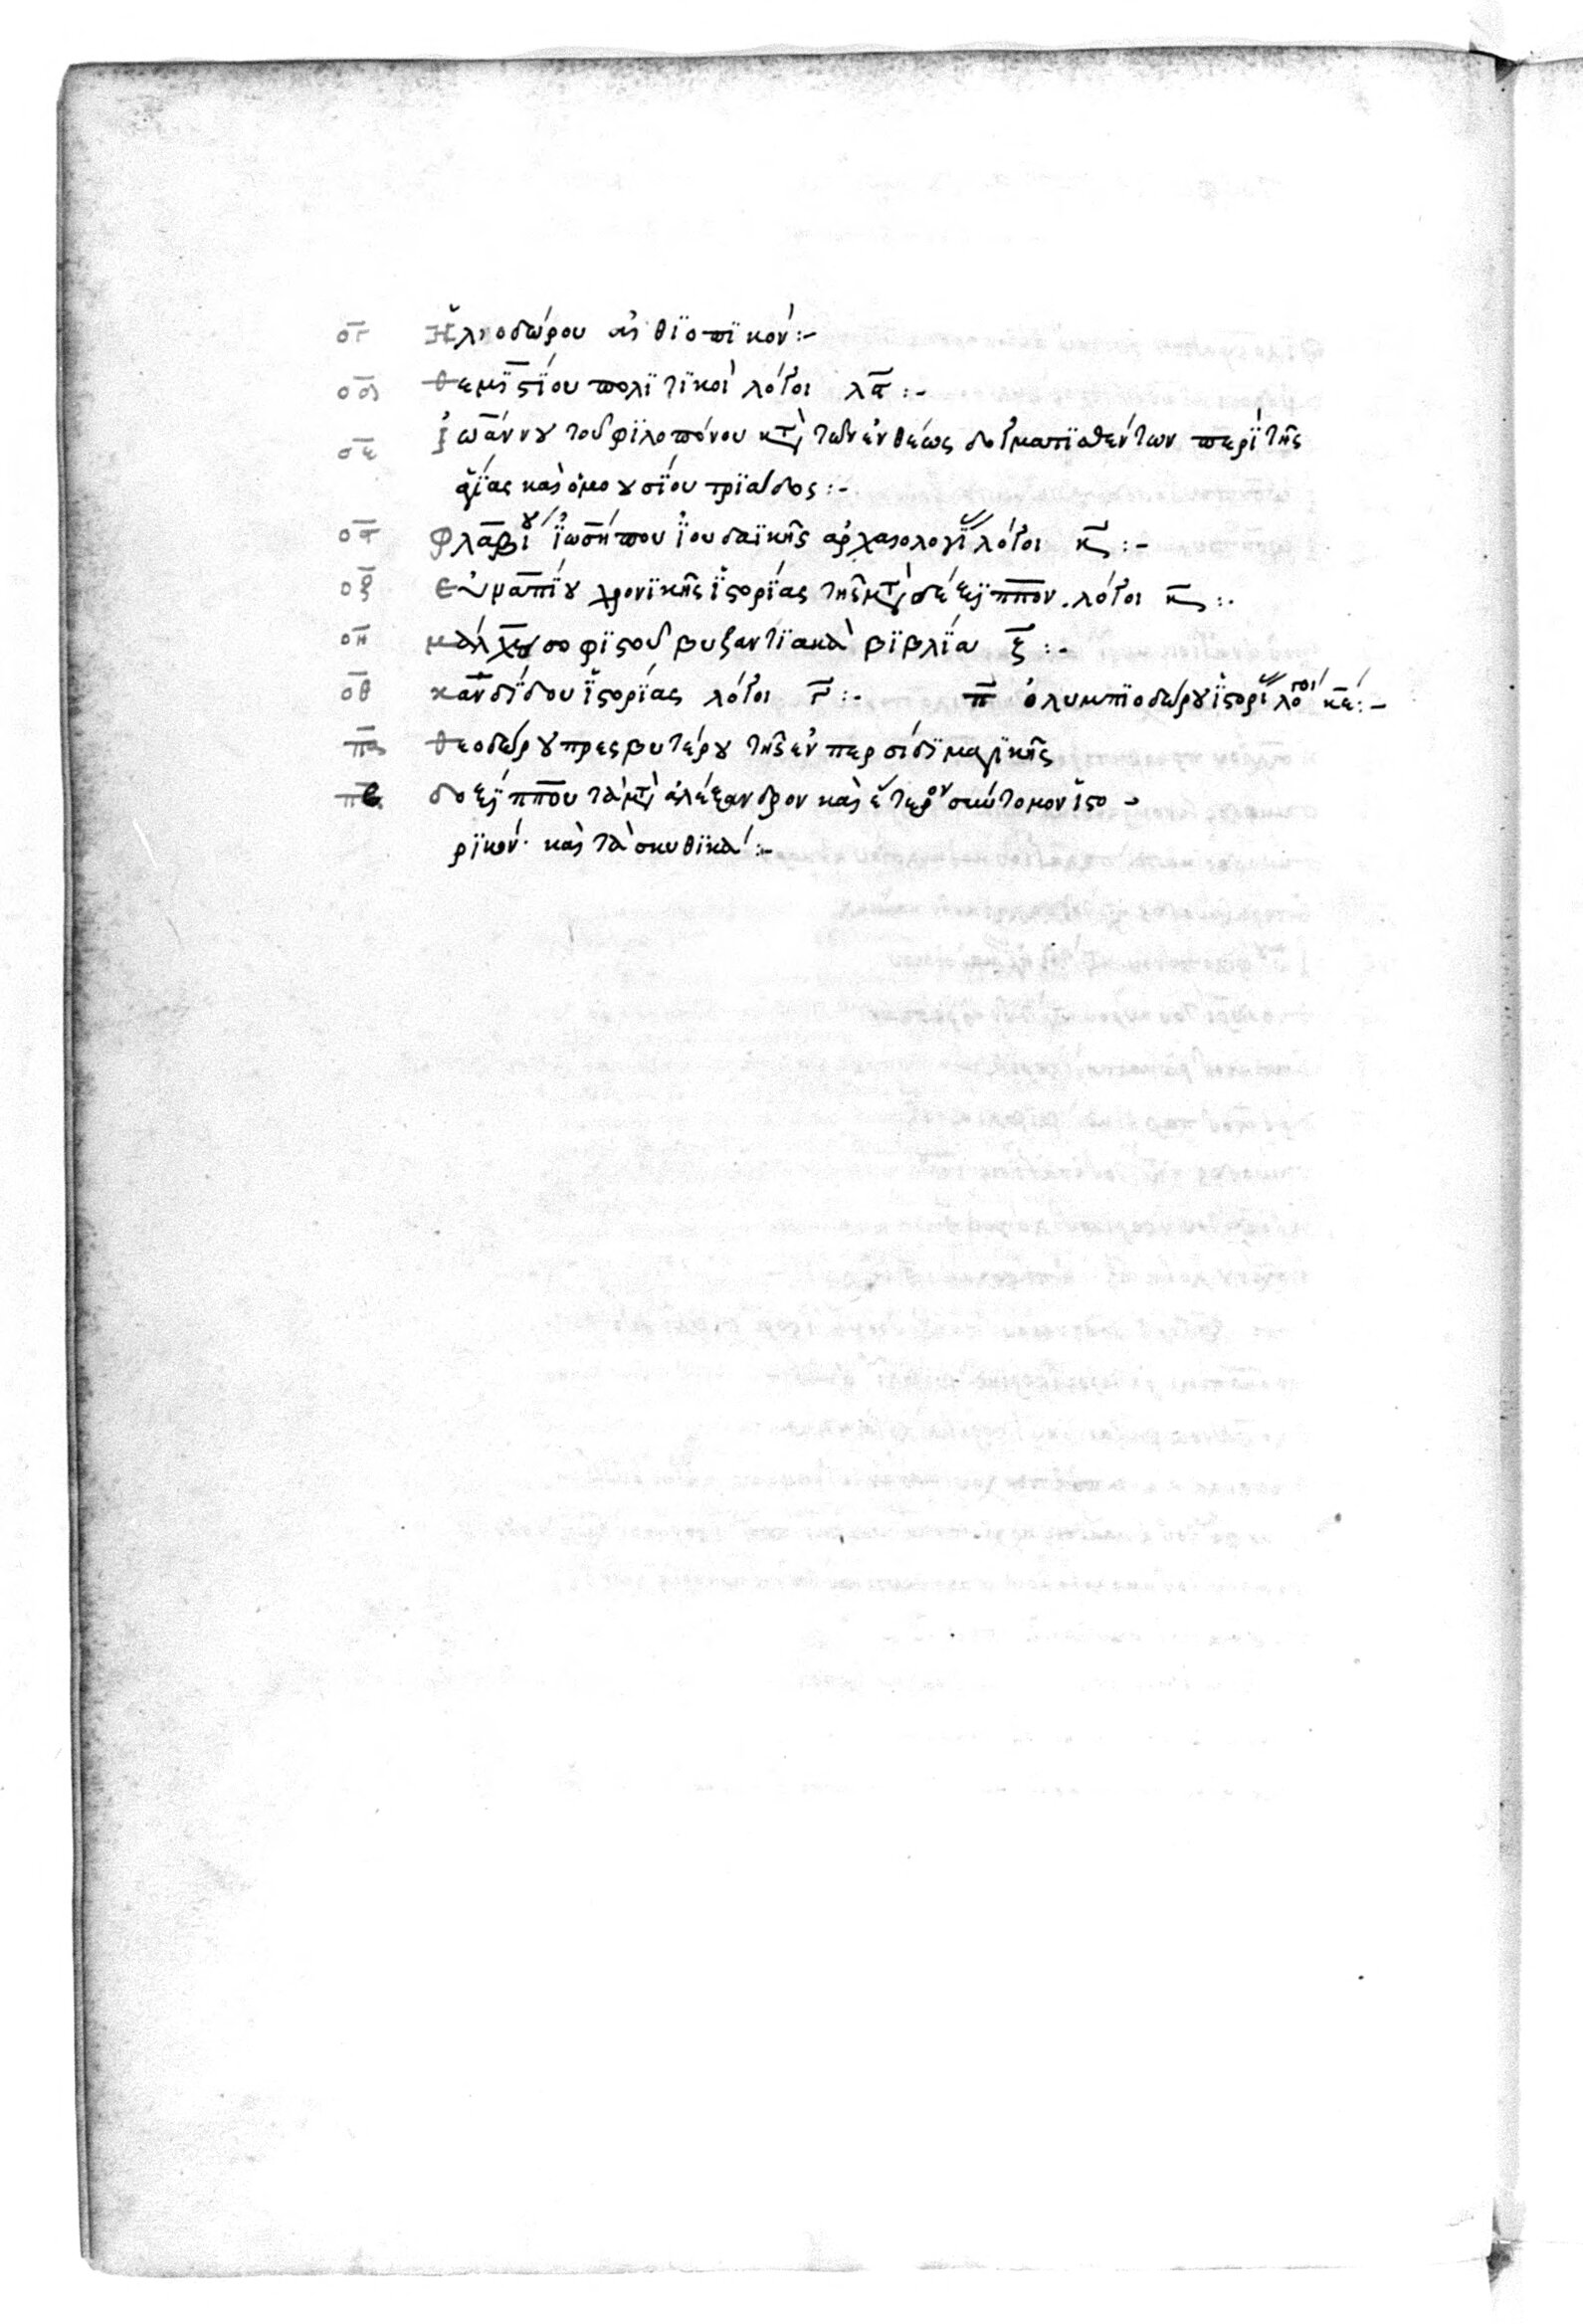 ογ Ἡλιοδώρου αἰθϊοπϊκόν:-
οδ θεμϊστΐου πολϊτϊκοὶ λόγοι λϛ:-
οε Ἰωάννου τοῦ φϊλοπόνου κατὰ τῶν ἐνθέως δογματϊσθέντων περὶ τῆς
ἁγΐας καὶ ὁμοουσΐου τρϊάδος:-
οϛ φλαβΐου ἰωσήπου ἰουδαϊκῆς ἀρχαιολογΐ λόγοι κ:-
οζ εὐναπΐου χρονϊκῆς ἱστορΐας τῆς μετὰ δέξϊππον. λόγοι
οη μάλχου σοφϊστοῦ βυζαντϊακὰ βϊβλΐα ζ:-
οθ κανδΐδου ἱστορΐας λόγοι γ:- π ὀλυμπϊοδώρου ἱστορΐ λόγοι κε:-
πα θεοδώρου πρεσβυτέρου τῆς ἐν περσΐδϊ μαγϊκῆς
πβ δεξΐππου τὰ μετὰ ἀλέξανδρον καὶ ἕτερον σύντομον ἱστο-
ρϊκόν· καὶ τὰ σκυθϊκά:-